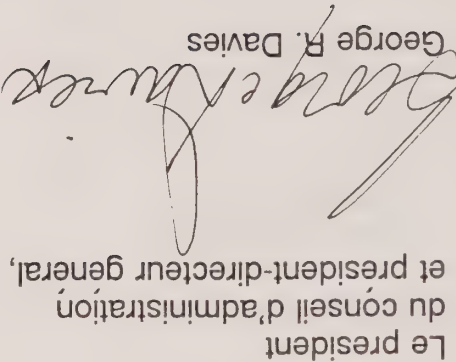 Le président
du conseil d'administration
et president-directeur general,
George R. Davies
George R. Davies